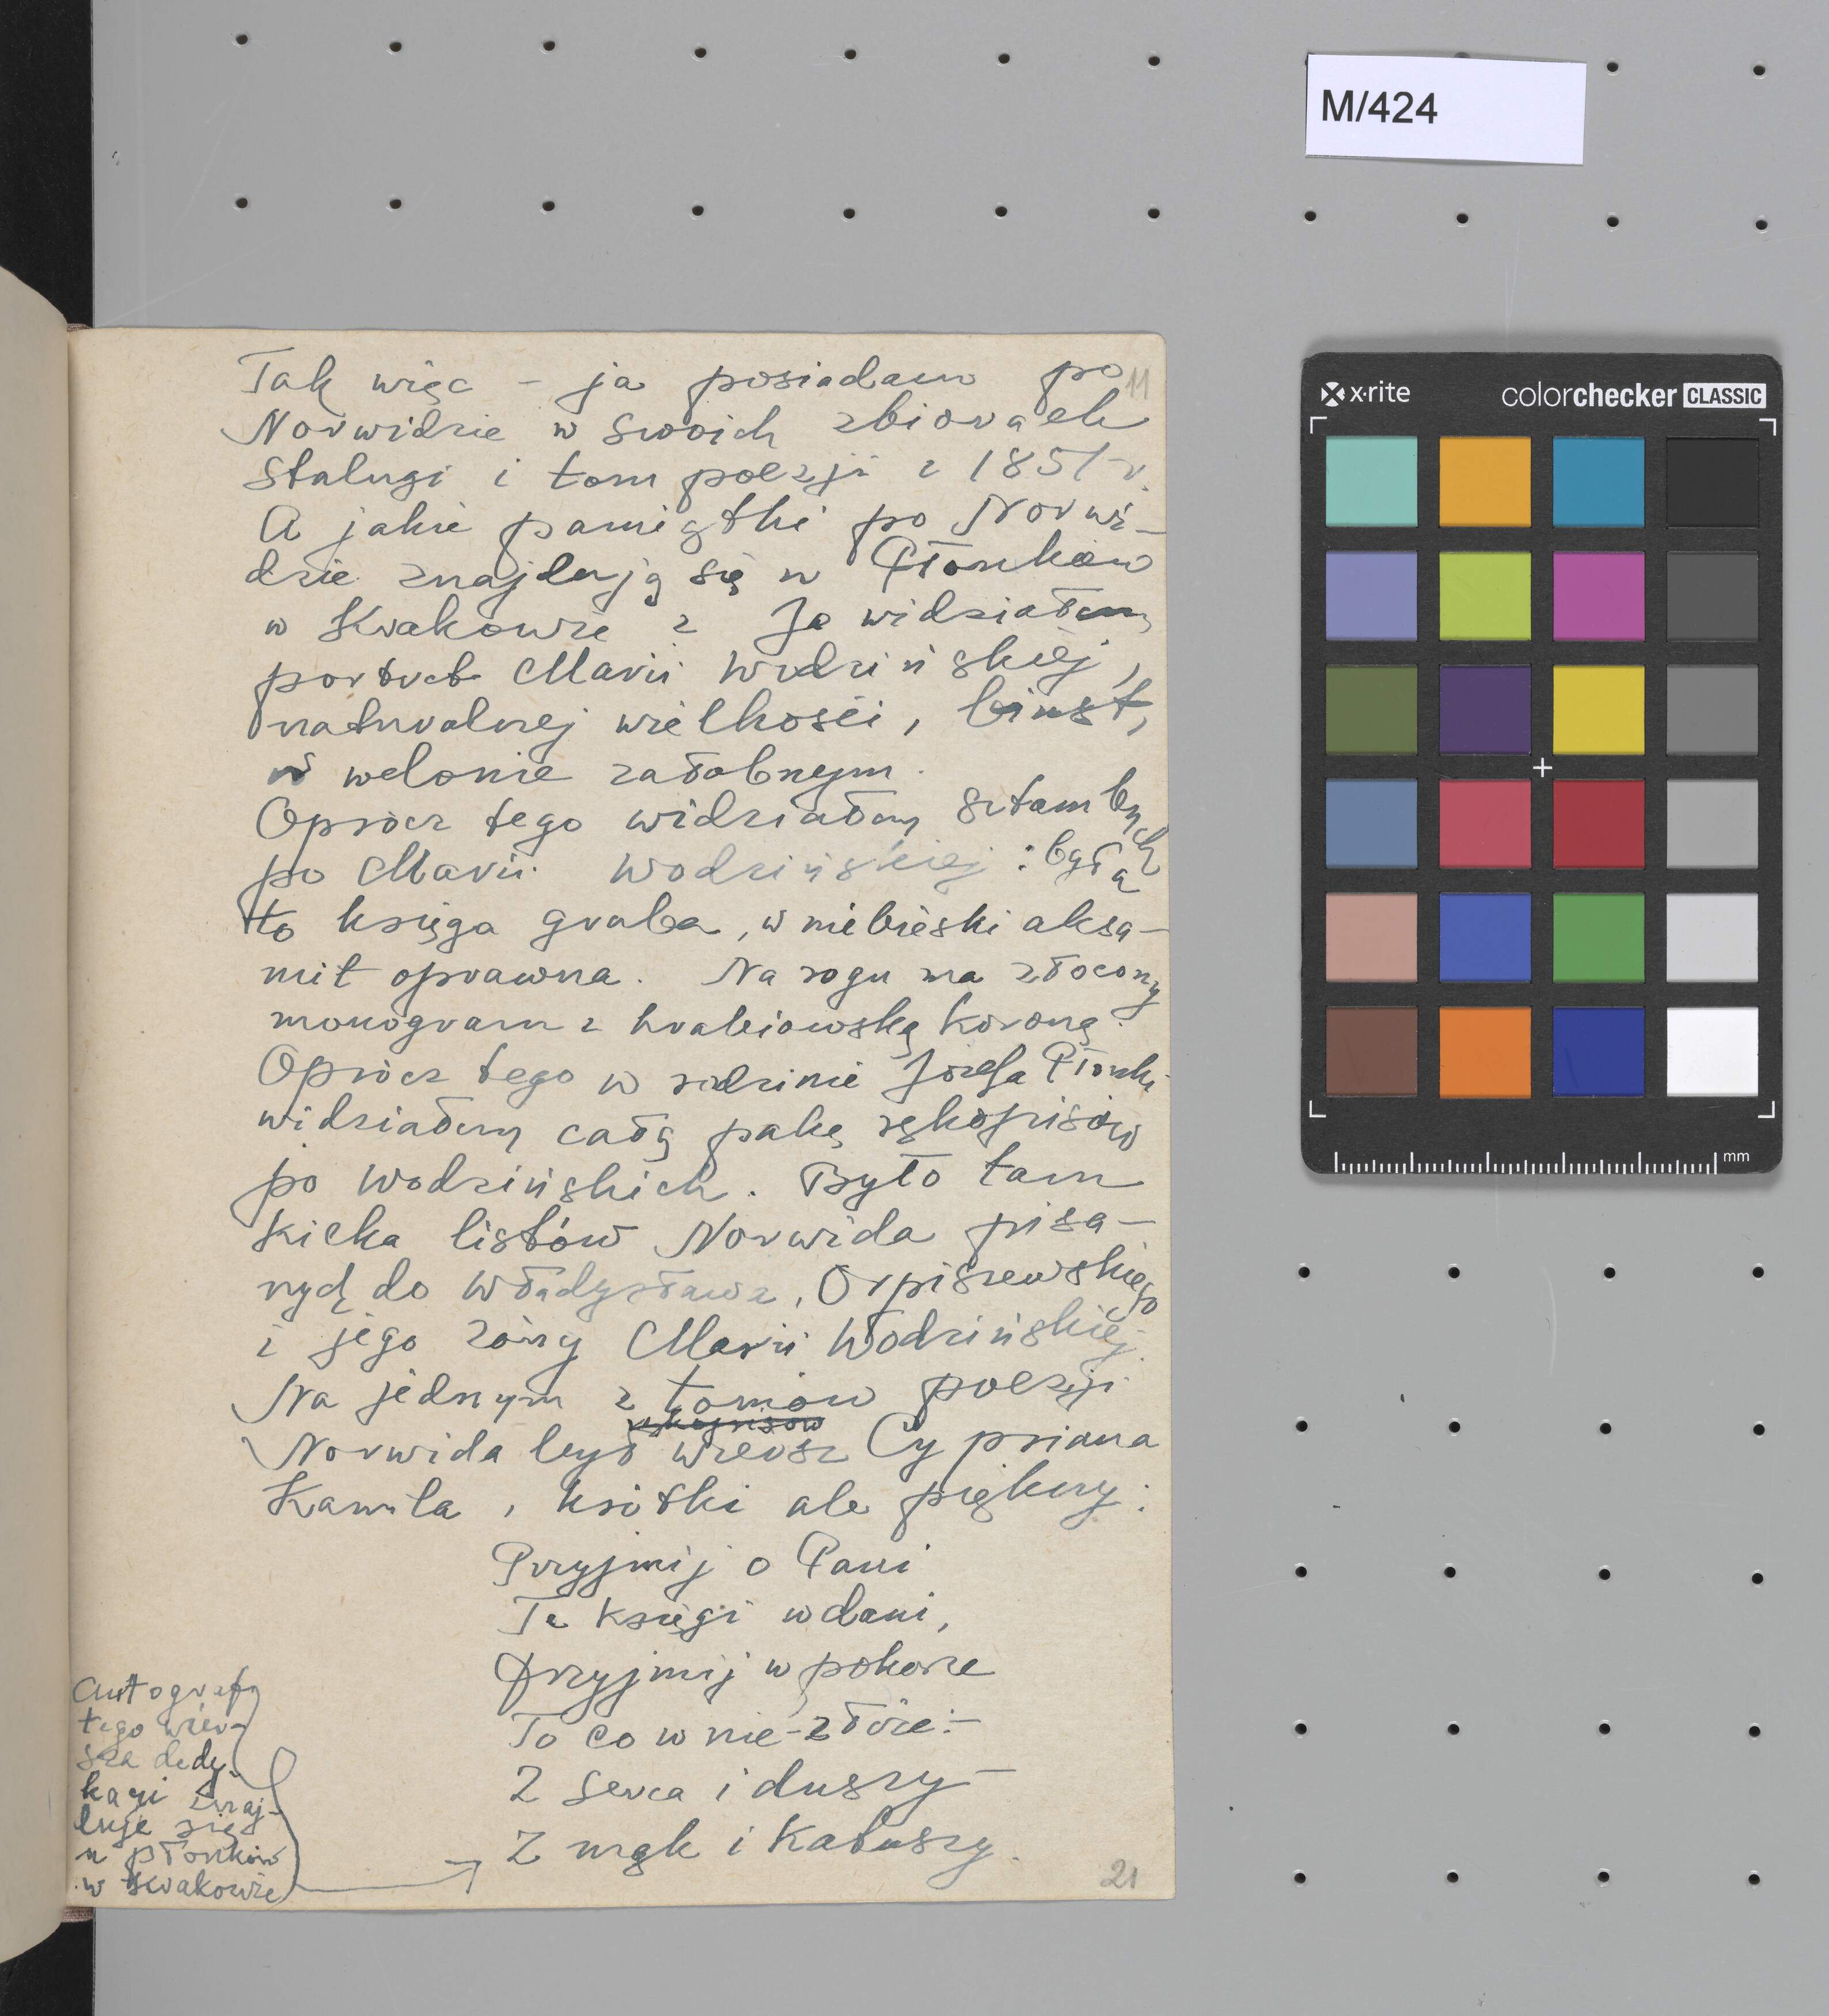 M/424
x·rite
colorchecker CLASSIC
mm
11
Tak więc – ja posiadam po
Norwidzie w swoich zbiorach
Stalugi i tom poezji z 1851 r.
A jakie pamiątki po Norwi–
dzie znajdują się u Płonków
w Krakowie? Ja widziałem
portret Marii Wodzińskiej,
naturalnej wielkości, biust,
w welonie żałobnym.
Oprócz tego widziałem sztambuch
po Marii Wodzińskiej: była
to księga gruba, w niebieski aksa–
mit oprawna. Na rogu ma złocony
monogram z hrabiowską koroną.
Oprócz tego w rodzinie Józefa Płonki
widziałem całą pakę rękopisów
po Wodzińskich. Było tam
kilka listów Norwida pisa–
nych do Władysława, Orpiszewskiego
i jego żony Marii Wodzińskiej.
Na jednym z tomów poezji
rękopisów
Norwida był wiersz Cypriana
Kamila, krótki ale piękny:
Przyjmij o Pani
Te księgi w dani,
Przyjmij w pokorze
To co w nie-złożę:–
Z serca i duszy –
Z mąk i katuszy.
Autograf
tego wier–
sza dedy–
kacji znaj–
duje się
u Płonków
w Krakowie
21